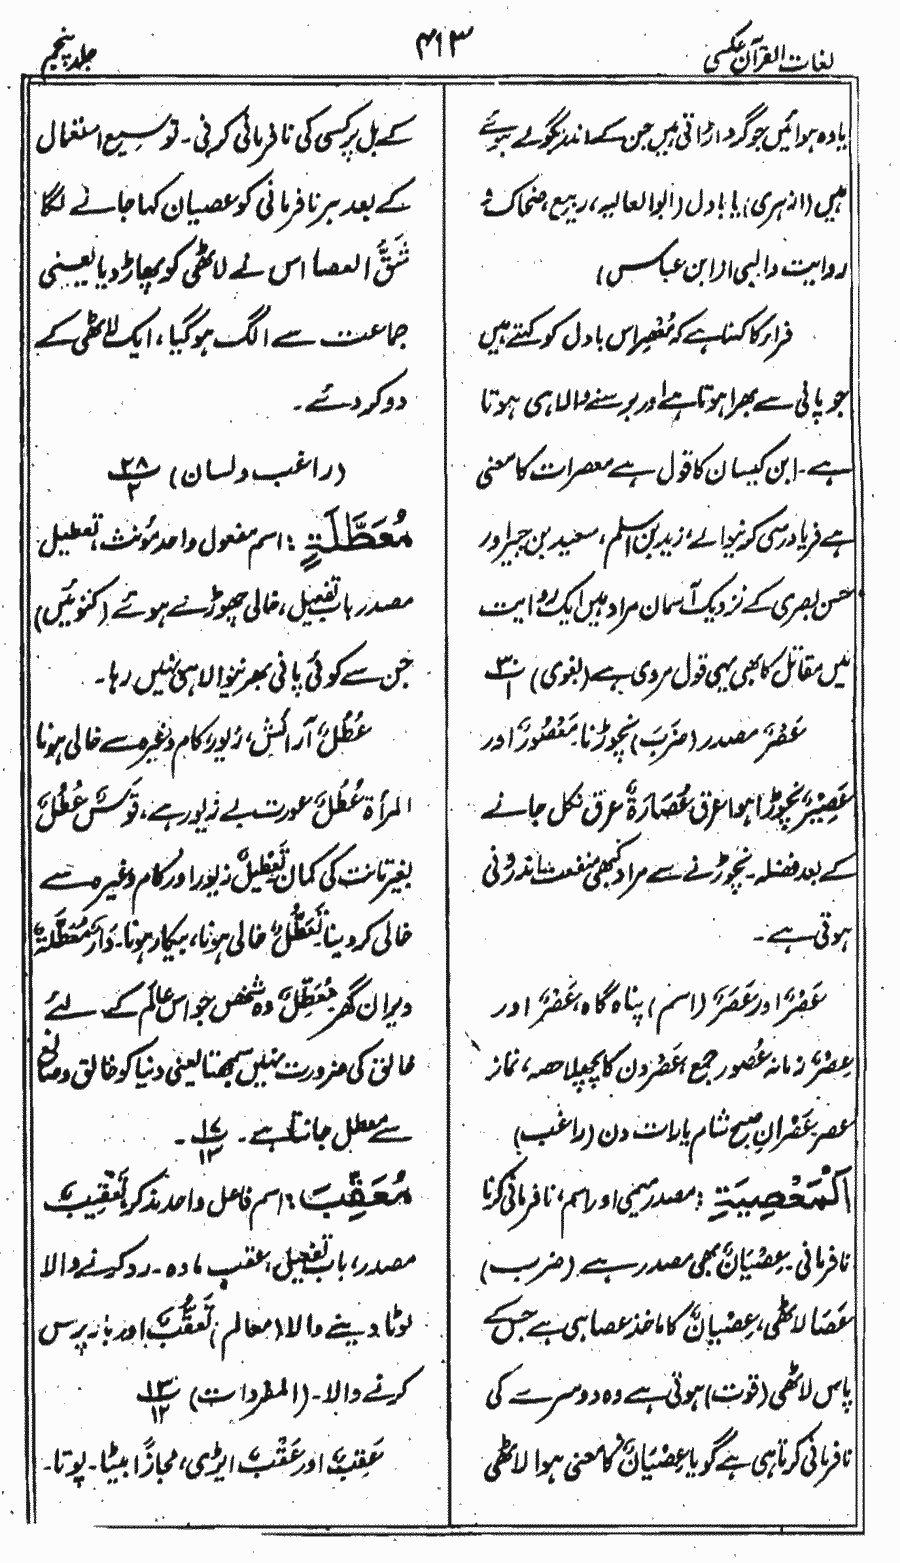 لغات القرآن عکسی
۴۱۳
جلد پنجم
یا وہ ہوائیں جو گرد اڑاتی ہیں جن کے اندر بگولے ہوئے
ہیں (ازہری) یا بادل (ابو العالیہ، ربیع، ضحاک و
روایت والبی از ابن عباس)
فراء کا کہنا ہے کہ مُعْصِر اس بادل کو کہتے ہیں
جو پانی سے بھرا ہوتا ہے اور برسنے والا ہی ہوتا
ہے۔ ابن کیسان کا قول ہے معصرات کا معنی
ہے فریاد رسی کرنیوالے، زید بن اسلم، سعید بن جبیر اور
حسن بصری کے نزدیک آسمان مراد ہیں ایک روایت
میں مقاتل کا بھی یہی قول مروی ہے (بغوی) ۳۰/۱
عَصْرٌ مصدر (ضَرَبَ) نچوڑنا مَعْصُورٌ اور
عَصِیْرٌ نچوڑا ہوا عرق عُصَارَۃٌ عرق نکل جانے
کے بعد فضلہ۔ نچوڑنے سے مراد کبھی منفعت اندوزی
ہوتی ہے۔
عَصْرٌ اور عَصَرٌ (اسم) پناہ گاہ، عَصْرٌ اور
عِصْرٌ زمانہ عُصُور جمع، عَصْرٌ دن کا پچھلا حصہ، نماز
عصر عَصْرَانِ صبح شام یا رات دن (راغب)
اَلْمَعْصِیَتِ : مصدر میمی اور اسم، نافرمانی کرنا
نافرمانی۔ عِصْیَانٌ بھی مصدر ہے (ضرب)
عَصَا لاٹھی، عِصْیَانٌ کا ماخذ عصا ہی ہے جس کے
پاس لاٹھی (قوت) ہوتی ہے وہ دوسرے کی
نافرمانی کرتا ہی ہے گویا عِصْیَانٌ کا معنی ہوا لاٹھی
کے بل پر کسی کی نافرمانی کرنی۔ توسیع استعمال
کے بعد ہر نافرمانی کو عصیان کہا جانے لگا
شَقَّ العصا اس نے لاٹھی کو پھاڑ دیا یعنی
جماعت سے الگ ہو گیا، ایک لاٹھی کے
دو کر دئے۔
(راغب و لسان) ۲۸/۲
مُعَطَّلَۃٍ : اسم مفعول واحد مؤنث، تعطیل
مصدر باب تفعیل، خالی چھوڑے ہوئے (کنوئیں)
جن سے کوئی پانی بھرنیوالا ہی نہیں رہا۔
عُطُلٌ آرائش، زیور، کام وغیرہ سے خالی ہونا
المرأۃ عُطُلٌ عورت بے زیور ہے، قَوْسٌ عُطُلٌ
بغیر تانت کی کمان تَعْطِیلٌ زیور اور کام وغیرہ سے
خالی کر دینا تَعَطُّلٌ خالی ہونا، بیکار ہونا۔ دَارٌ مُعَطَّلَۃٌ
ویران گھر مُعَطِّلٌ وہ شخص جو اس عالم کے لئے
خالق کی ضرورت نہیں سمجھتا یعنی دنیا کو خالق و صانع
سے معطل جانتا ہے۔ ۱۷/۱۳۔
مُعَقِّبَ : اسم فاعل واحد مذکر تَعْقِیبٌ
مصدر، باب تفعیل، عقب مادہ۔ رد کرنے والا
لوٹا دینے والا (معالم) تَعَقُّبٌ اور باز پرس
کرنے والا۔ (المفردات) ۱۳/۱۲
عَقِبٌ اور عَقْبٌ ایڑی، مجازًا بیٹا۔ پوتا۔